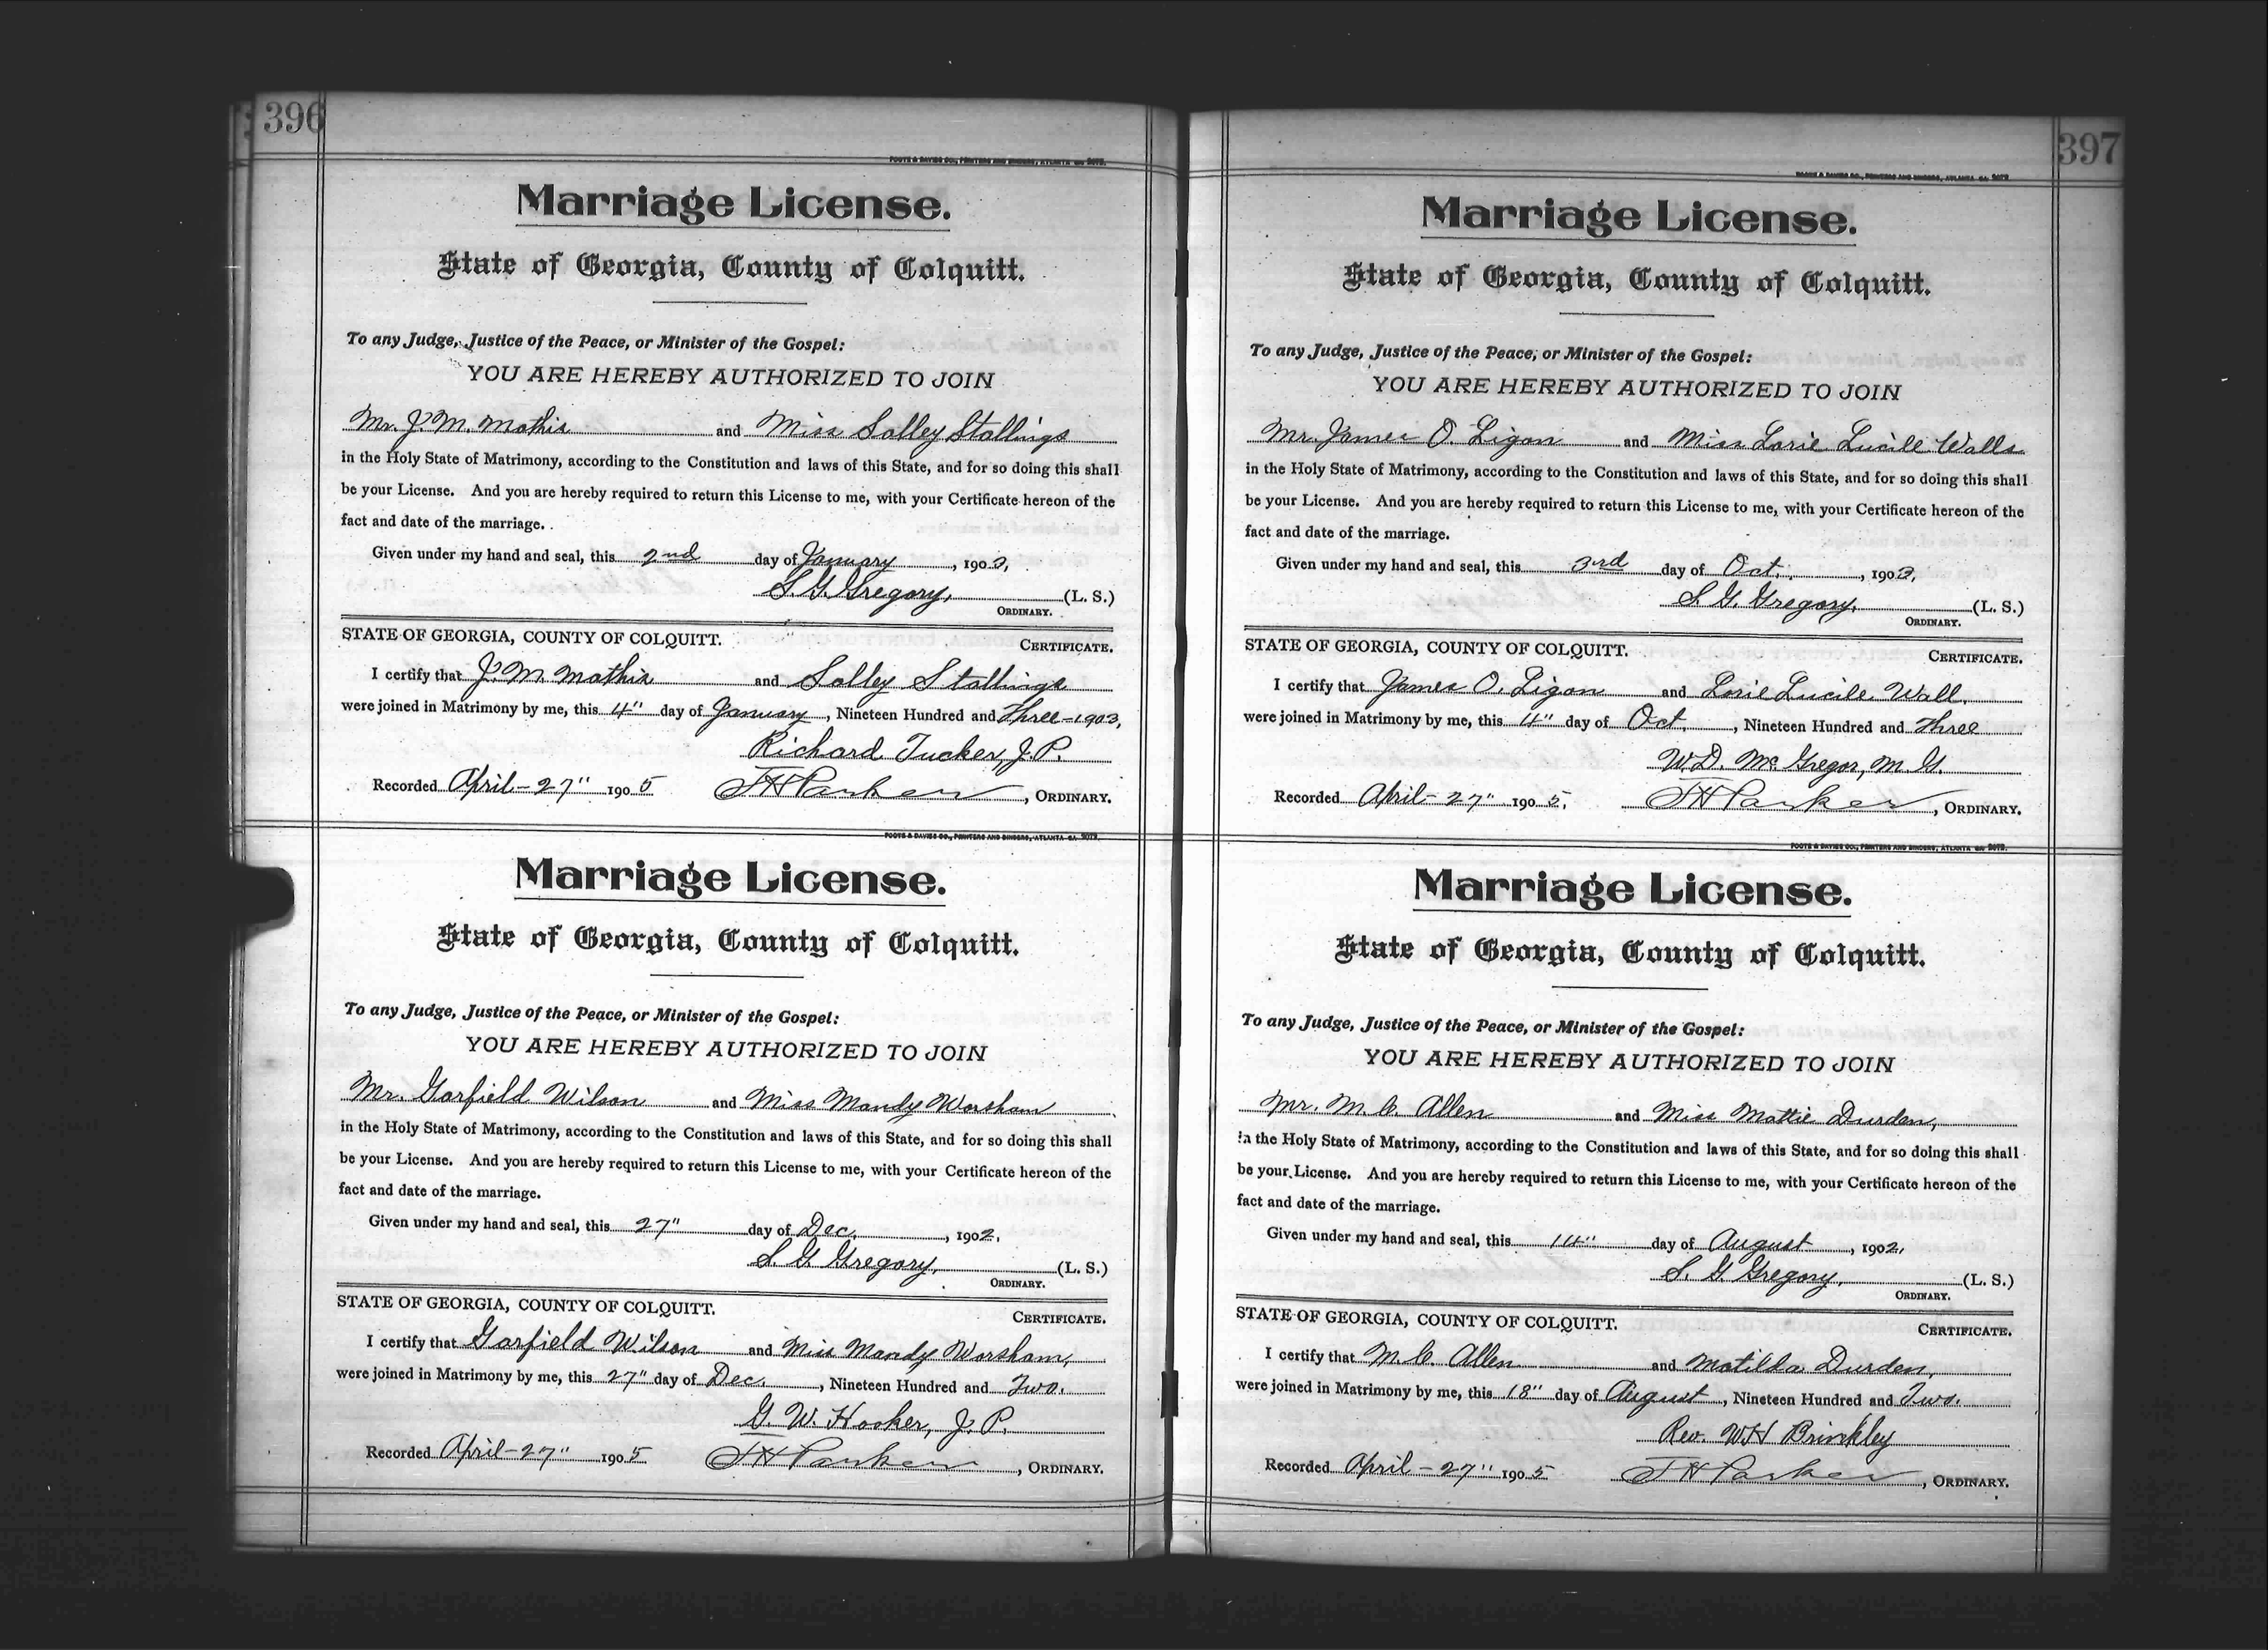 396
FOOTE & DAVIES CO., PRINTERS AND BINDERS, ATLANTA GA 9072.
Marriage License.
State of Georgia, County of Colquitt.
To any Judge, Justice of the Peace, or Minister of the Gospel:
YOU ARE HEREBY AUTHORIZED TO JOIN
Mr. J. M. Mathis and Miss Salley Stallings
in the Holy State of Matrimony, according to the Constitution and laws of this State, and for so doing this shall
be your License. And you are hereby required to return this License to me, with your Certificate hereon of the
fact and date of the marriage.
Given under my hand and seal, this 2nd day of January, 1903,
S. G. Gregory, (L. S.)
ORDINARY.
STATE OF GEORGIA, COUNTY OF COLQUITT. CERTIFICATE.
I certify that J. M. Mathis and Salley Stallings
were joined in Matrimony by me, this 4" day of January, Nineteen Hundred and Three-1903,
Richard Tucker, J. P.
Recorded April-27" 1905 J H Parker, ORDINARY.
FOOTE & DAVIES CO., PRINTERS AND BINDERS, ATLANTA GA 9072.
Marriage License.
State of Georgia, County of Colquitt.
To any Judge, Justice of the Peace, or Minister of the Gospel:
YOU ARE HEREBY AUTHORIZED TO JOIN
Mr. Garfield Wilson and Miss Mandy Worsham
in the Holy State of Matrimony, according to the Constitution and laws of this State, and for so doing this shall
be your License. And you are hereby required to return this License to me, with your Certificate hereon of the
fact and date of the marriage.
Given under my hand and seal, this 27" day of Dec, 1902,
S. G. Gregory, (L. S.)
ORDINARY.
STATE OF GEORGIA, COUNTY OF COLQUITT. CERTIFICATE.
I certify that Garfield Wilson and Miss Mandy Worsham,
were joined in Matrimony by me, this 27" day of Dec., Nineteen Hundred and Two.
G. W. Hooker, J. P.
Recorded April-27" 1905 J H Parker, ORDINARY.
397
FOOTE & DAVIES CO., PRINTERS AND BINDERS, ATLANTA GA 9072.
Marriage License.
State of Georgia, County of Colquitt.
To any Judge, Justice of the Peace, or Minister of the Gospel:
YOU ARE HEREBY AUTHORIZED TO JOIN
Mr. James O. Ligon and Miss Lorie Lucile Walls
in the Holy State of Matrimony, according to the Constitution and laws of this State, and for so doing this shall
be your License. And you are hereby required to return this License to me, with your Certificate hereon of the
fact and date of the marriage.
Given under my hand and seal, this 3rd day of Oct., 1903,
S. G. Gregory, (L. S.)
ORDINARY.
STATE OF GEORGIA, COUNTY OF COLQUITT. CERTIFICATE.
I certify that James O. Ligon and Lorie Lucile Wall,
were joined in Matrimony by me, this 4" day of Oct., Nineteen Hundred and Three
W. D. McGregor, M. G.
Recorded April-27" 1905, J H Parker, ORDINARY.
FOOTE & DAVIES CO., PRINTERS AND BINDERS, ATLANTA GA 9072.
Marriage License.
State of Georgia, County of Colquitt.
To any Judge, Justice of the Peace, or Minister of the Gospel:
YOU ARE HEREBY AUTHORIZED TO JOIN
Mr. M. C. Allen and Miss Mattie Durden,
in the Holy State of Matrimony, according to the Constitution and laws of this State, and for so doing this shall
be your License. And you are hereby required to return this License to me, with your Certificate hereon of the
fact and date of the marriage.
Given under my hand and seal, this 14" day of August, 1902,
S. G. Gregory, (L. S.)
ORDINARY.
STATE OF GEORGIA, COUNTY OF COLQUITT. CERTIFICATE.
I certify that M. C. Allen and Matilda Durden,
were joined in Matrimony by me, this 18" day of August, Nineteen Hundred and Two.
Rev. W H Brinkley
Recorded April-27" 1905 J H Parker, ORDINARY.